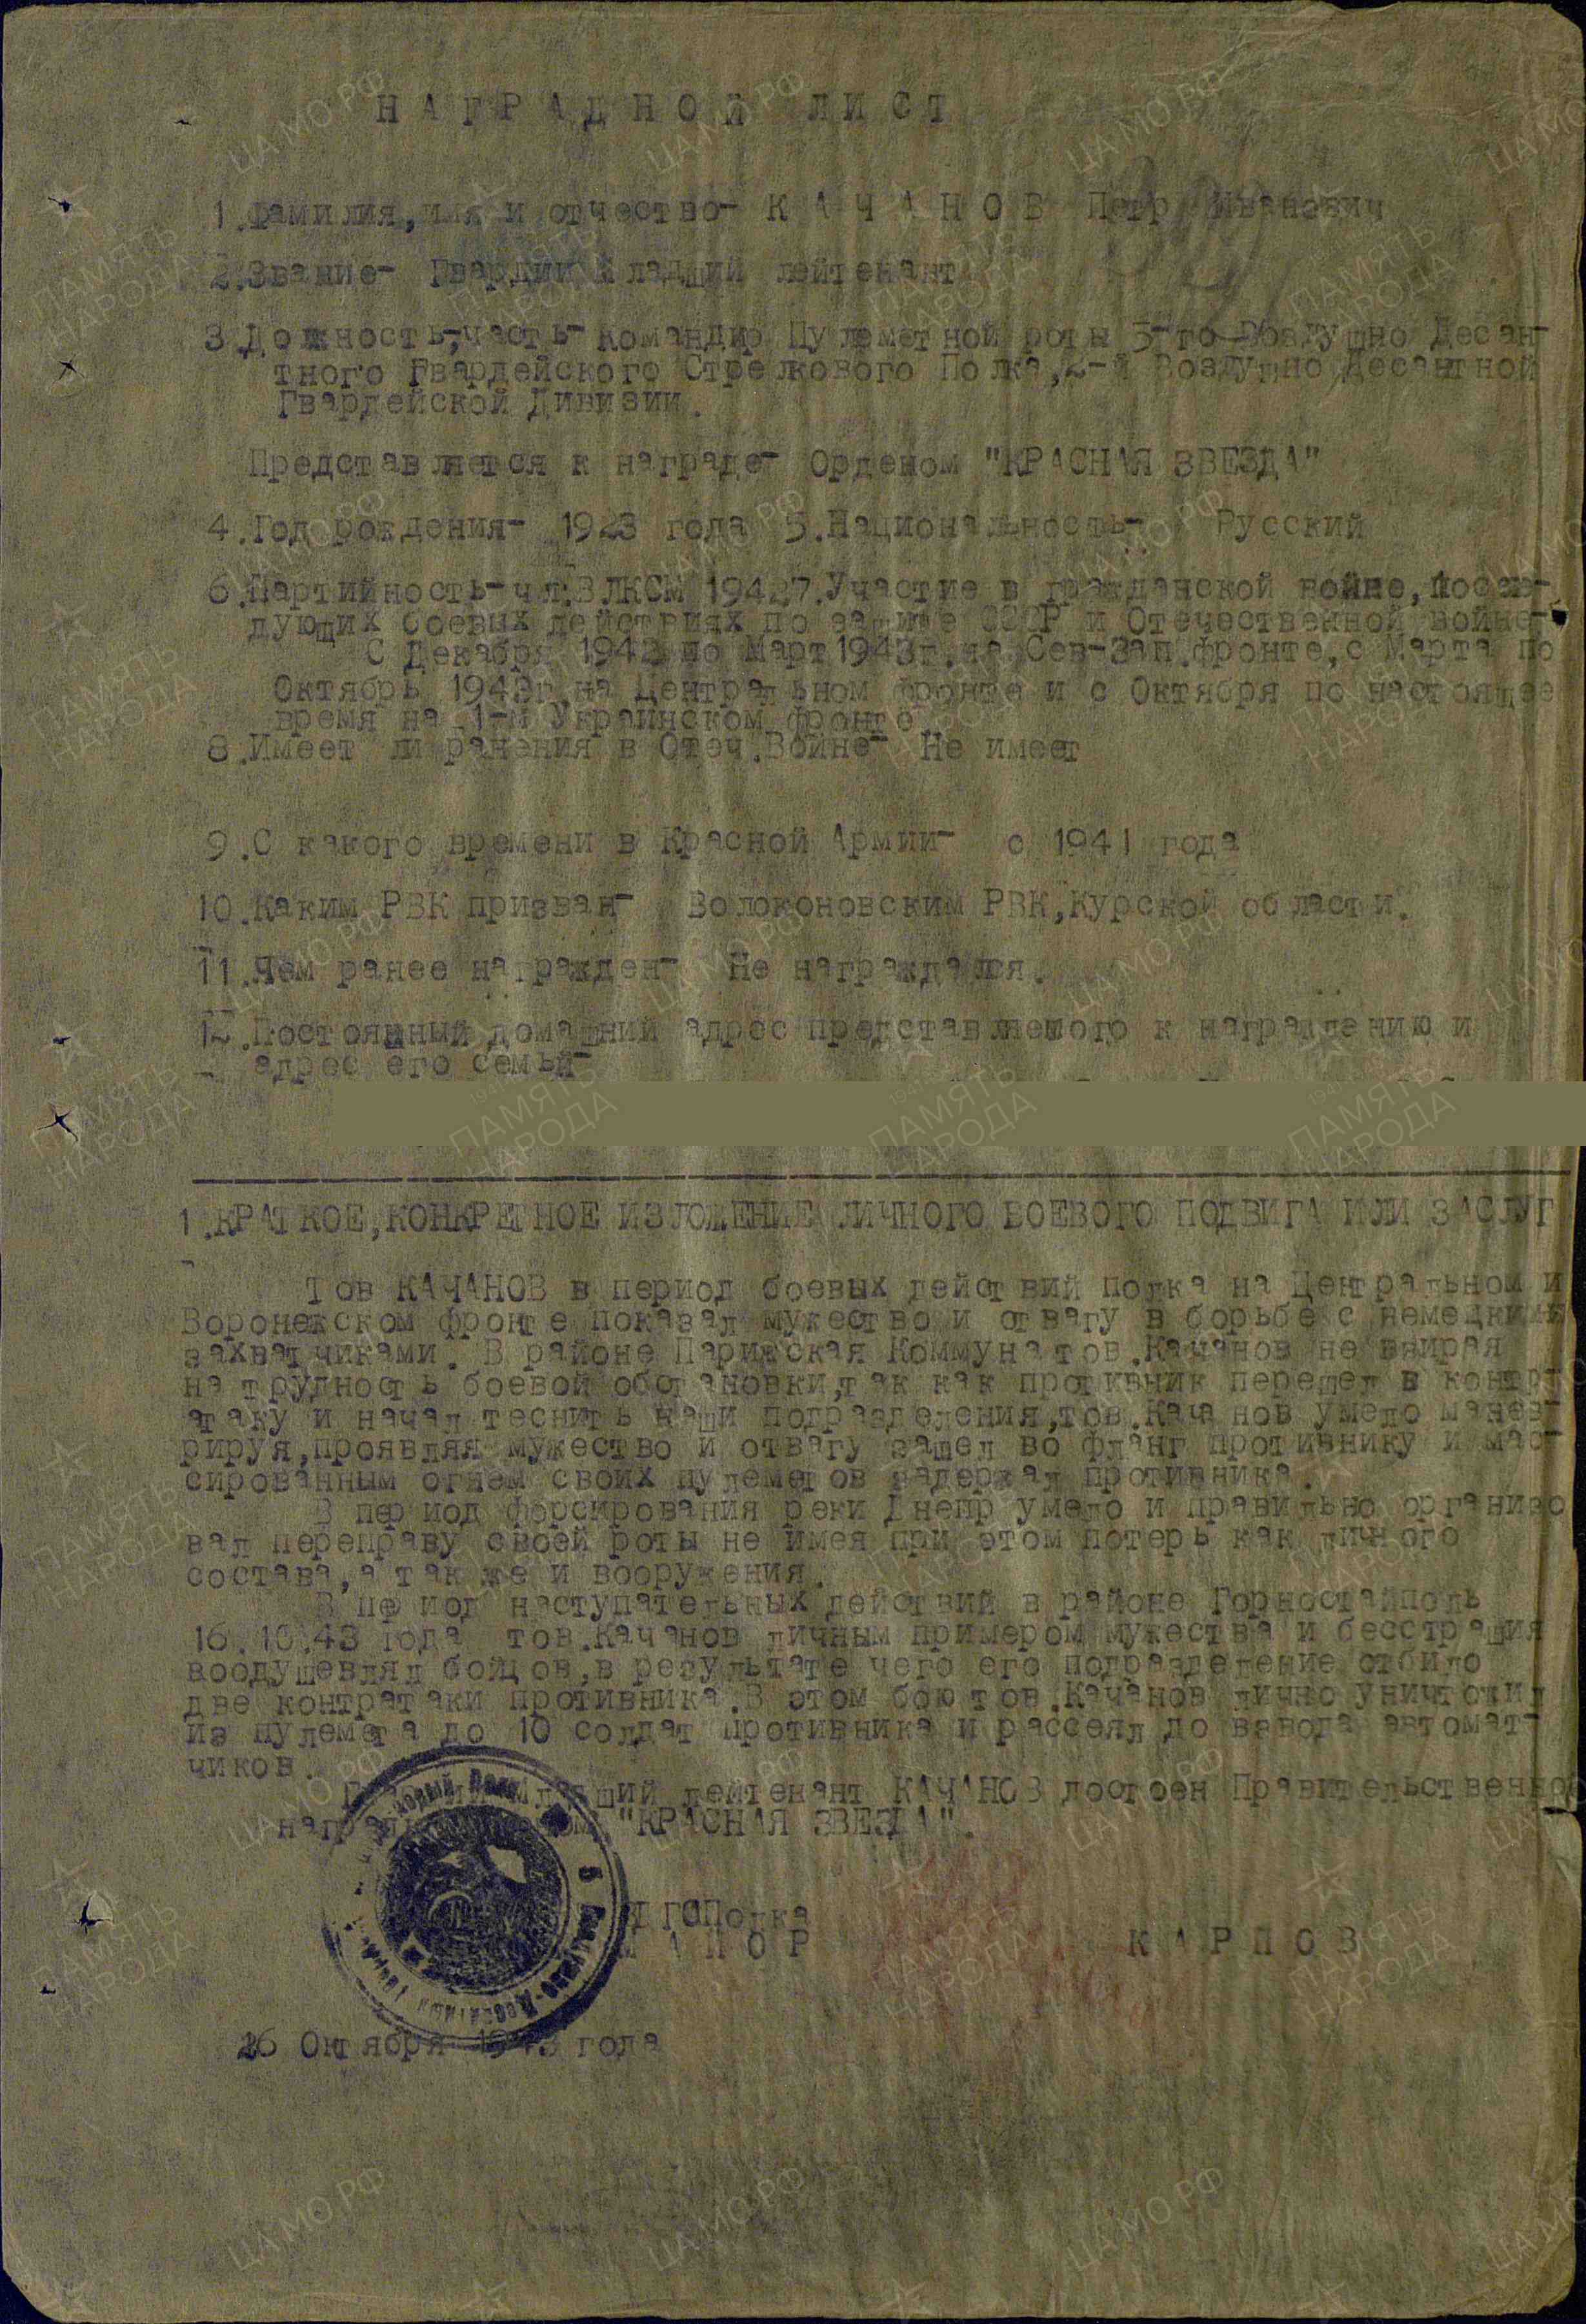 НАГРАДНОЙ ЛИСТ
1.Фамилия,имя и отчество- КАЧАНОВ Петр Иванович
2.Звание- Гвардии Младший лейтенант
3.Должность,часть- Командир Пулеметной роты 5-го Воздушно Десан-
тного Гвардейского Стрелкового Полка,2-й Воздушно Десантной
Гвардейской Дивизии.
Представляется к награде- Орденом "КРАСНАЯ ЗВЕЗДА"
4.Год рождения- 1923 года 5.Национальность- Русский
6.Партийность-чл.ВЛКСМ 1942 7.Участие в гражданской войне,после-
дующих боевых действиях по защите СССР и Отечественной войне-
С Декабря 1942 по Март 1943г.на Сев-Зап.фронте,с Марта по
Октябрь 1943г на Центральном фронте и с Октября по настоящее
время на 1-м Украинском фронте
8.Имеет ли ранения в Отеч.Войне- Не имеет
9.С какого времени в Красной Армии- с 1941 года
10.Каким РВК призван- Волоконовским РВК,Курской области.
11.Чем ранее награжден- Не награждался.
12.Постоянный домашний адрес представляемого к награждению и
адрес его семьи-
1.КРАТКОЕ,КОНКРЕТНОЕ ИЗЛОЖЕНИЕ ЛИЧНОГО БОЕВОГО ПОДВИГА ИЛИ ЗАСЛУГ
Тов КАЧАНОВ в период боевых действий полка на Центральном и
Воронежском фронте показал мужество и отвагу в борьбе с немецкими
захватчиками. В районе Парижская Коммуна тов.Качанов не взирая
на трудность боевой обстановки,так как противник перешел в контр
атаку и начал теснить наши подразделения,тов.Качанов умело манев-
рируя,проявляя мужество и отвагу зашел во фланг противнику и мас-
сированным огнем своих пулеметов задержал противника.
В период форсирования реки Днепр умело и правильно организо
вал переправу своей роты не имея при этом потерь как личного
состава,а так же и вооружения.
В период наступательных действий в районе Горностайполь
16.10.43 года тов.Качанов личным примером мужества и бесстрашия
воодушевлял бойцов,в результате чего его подразделение отбило
две контратаки противника.В этом бою тов.Качанов лично уничтожил
из пулемета до 10 солдат противника и рассеял до взвода автомат-
чиков.
Гвардии Младший лейтенант КАЧАНОВ достоен Правительственной
награды "КРАСНАЯ ЗВЕЗДА".
ГСПолка
МАЙОР КАРПОВ
26 Октября 1943 года
ЦА МО РФ
ПАМЯТЬ
НАРОДА